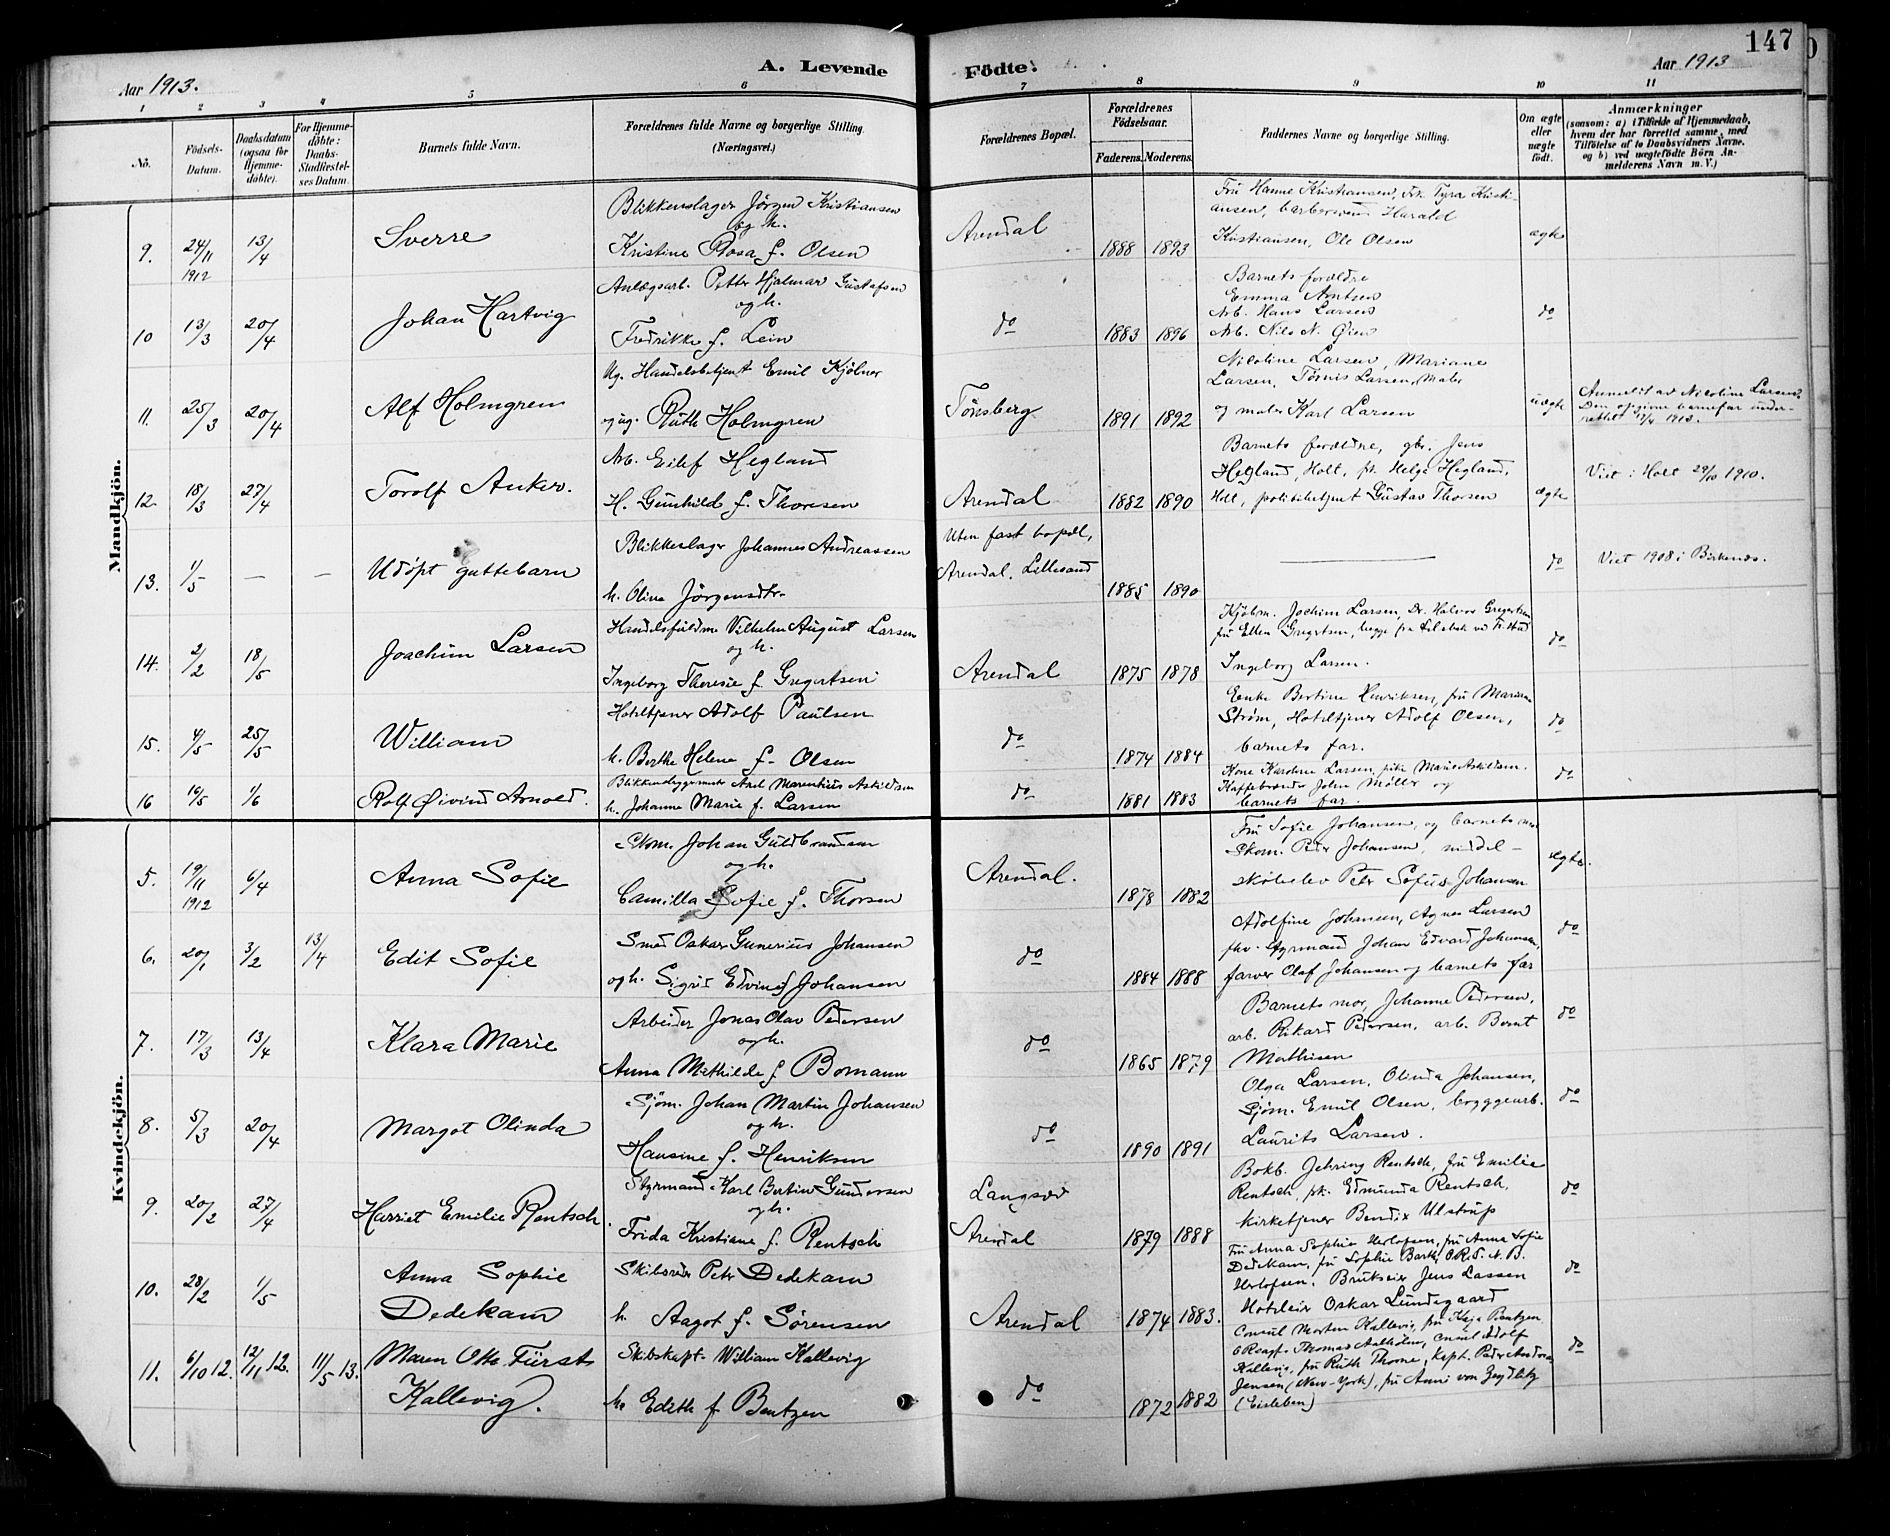 147
Aar 1913. A. Levende Födte. Aar 1913
1 2 3 4 5 6 7 8 9 10 11
No.
Födsels-Datum.
Daabsdatum (ogsaa for Hjemme-döbte).
For Hjemme-döbte: Daabs-Stadfæstel-ses Datum.
Barnets fulde Navn.
Forældrenes fulde Navne og borgerlige Stilling. (Næringsvei.)
Forældrenes Bopæl.
Forældrenes Födselsaar.
Faderens. Moderens.
Faddernes Navne og borgerlige Stilling.
Om ægte eller uægte födt.
Anmærkninger
(saasom: a) i Tilfælde af Hjemmedaab,
hvem der har forrettet samme, med
Tilföielse af to Daabsvidners Navne.
og b) ved uægtefödte Börn An-
melderens Navn m. V.)
Mandkjön.
9. 24/11 1912 13/4 Sverre
Blikkenslager Jörgen Kristiansen
og h.
Kristine Rosa f. Olsen
Arendal 1888 1893
Fru Hanne Kristiansen, frk. Tyra Kristi-
ansen, barbersvend Harald
Kristiansen, Ole Olsen
ægte
10 13/3 20/4 Johan Hartvig
Anlægsarb. Petter Hjalmar Gustafsen
og h.
Fredrikke f. Lein
do 1883 1896
Barnets forældre
Emma Arntsen
Arb. Hans Larsen
Arb. Nils N. Øien
do
11. 25/3 20/4 Alf Holmgren
Ug. Handelsbetjent Emil Kjölner
og ug. Ruth Holmgren
Tönsberg 1891 1892
Nicoline Larsen, Mariane
Larsen, Tönnis Larsen, Maler
og maler Karl Larsen
uægte
Anmeldt av Nicoline Larsen.
Den opgivne barnefar under-
rettet 17/4 1913.
12. 18/3 27/4 Torolf Anker.
Arb. Eilef Hegland
H. Gunhild f. Thoresen
Arendal 1882 1890
Barnets forældre, gbr. Jens
Hegland, Holt, pk. Helga Hegland,
Holt, politibetjent Gustav Thorsen
ægte
Viet i Holt 29/10 1910.
13. 1/5 — — Udöpt guttebarn
Blikkeslager Johannes Andreassen
h. Oline Jörgensdtr.
Uten fast bopæl,
Arendal, Lillesand 1885 1890
do
Viet 1908 i Birkenes.
14. 2/2 18/5 Joachim Larsen
Handelsfuldm. Vilhelm August Larsen
og h.
Ingeborg Theresie f. Gregertsen
Arendal 1875 1878
Kjöbm. Jochim Larsen, Dr. Halvor Gregertsen
fru Ellen Gregertsen,
Ingeborg Larsen.
do
15. 4/5 25/5 William
Hoteltjener Adolf Paulsen
h. Berthe Helene f. Olsen
do 1874 1884
Enke Bertine Henriksen, fru Marian
Strøm, Hoteltjener Adolf Olsen,
barnets far.
do
16 19/5 1/6 Rolf Øivind Arnold.
Axel Marentius Askildsen
h. Johanne Marie f. Larsen
do 1881 1883
Kone Karoline Larsen, pike Marie Askildsen.
Kaffebrænder John Møller og
barnets far.
do
Kvindekjön.
5. 19/11 1912 6/4 Anna Sofie
Skom. Johan Guldbrandsen
og h.
Camilla Sofie f. Thorsen
Arendal. 1878 1882
Fru Sofie Johansen, og barnets mor
Skom. Peder Johansen, middel-
skoleelev Petr Sofus Johansen
ægte.
6. 20/1 3/2 13/4 Edit Sofie
Smed Oskar Gunerius Johansen
og h. Sigrid Edvine f Johansen
do 1884 1888
Adolfine Johansen, Agnes Larsen
fhv. styrmand Johan Edvard Johansen,
farver Olaf Johansen og barnets far
do
7. 17/3 13/4 Klara Marie
Arbeider Jonas Olav Pedersen
og h.
Anna Mathilde f Bomann
do 1865 1879
Barnets mor, Johanne Pedersen,
arb. Rikard Pedersen, arb. Bernt
Mathisen
do
8. 5/3 20/4 Margot Olinda
Sjöm. Johan Martin Johansen
og h.
Hansine f. Henriksen
do 1890 1891
Olga Larsen, Olinda Johansen,
Sjöm. Emil Olsen, bryggearb.
Laurits Larsen.
do
9. 20/2 27/4 Harriet Emilie Rentsch.
Styrmand Karl Bertin Gundersen
og h.
Frida Kristiane f. Rentsch
Langsæv
Arendal 1879 1888
Bokb. Jehring Rentsch, fru Emilie
Rentsch, pk. Edmunda Rentsch,
kirketjener Bendix Ulstrup
do
10. 28/2 1/5 Anna Sophie
Dedekam
Skibsreder Petr Dedekam
h. Aagot f. Sörensen
Arendal 1874 1883.
Fru Anna Sophie Herlofsen, fru Anna Sofie
Dedekam, fru Sophie Barth, O.R.S. N. B.
Herlofsen, Brukseier Jens Lassen
Hoteleier Oskar Lundegaard
do
11. 6/10 12. 12/11 12. 11/5 13. Maren Otto Fürst
Kallevig.
Skibskapt. William Kallevig
h. Edith f Bentzen
do 1872 1882
Consul Morten Kallevig, fru Kaja Bentzen
ORsagf. Thomas Aalholm, Consul Adolf
Kallevig, fru Ruth Thorne, kapt. Peder Andreas
Jensen (New-York), fru Anni von Zeydlitz
(Eisleben)
do